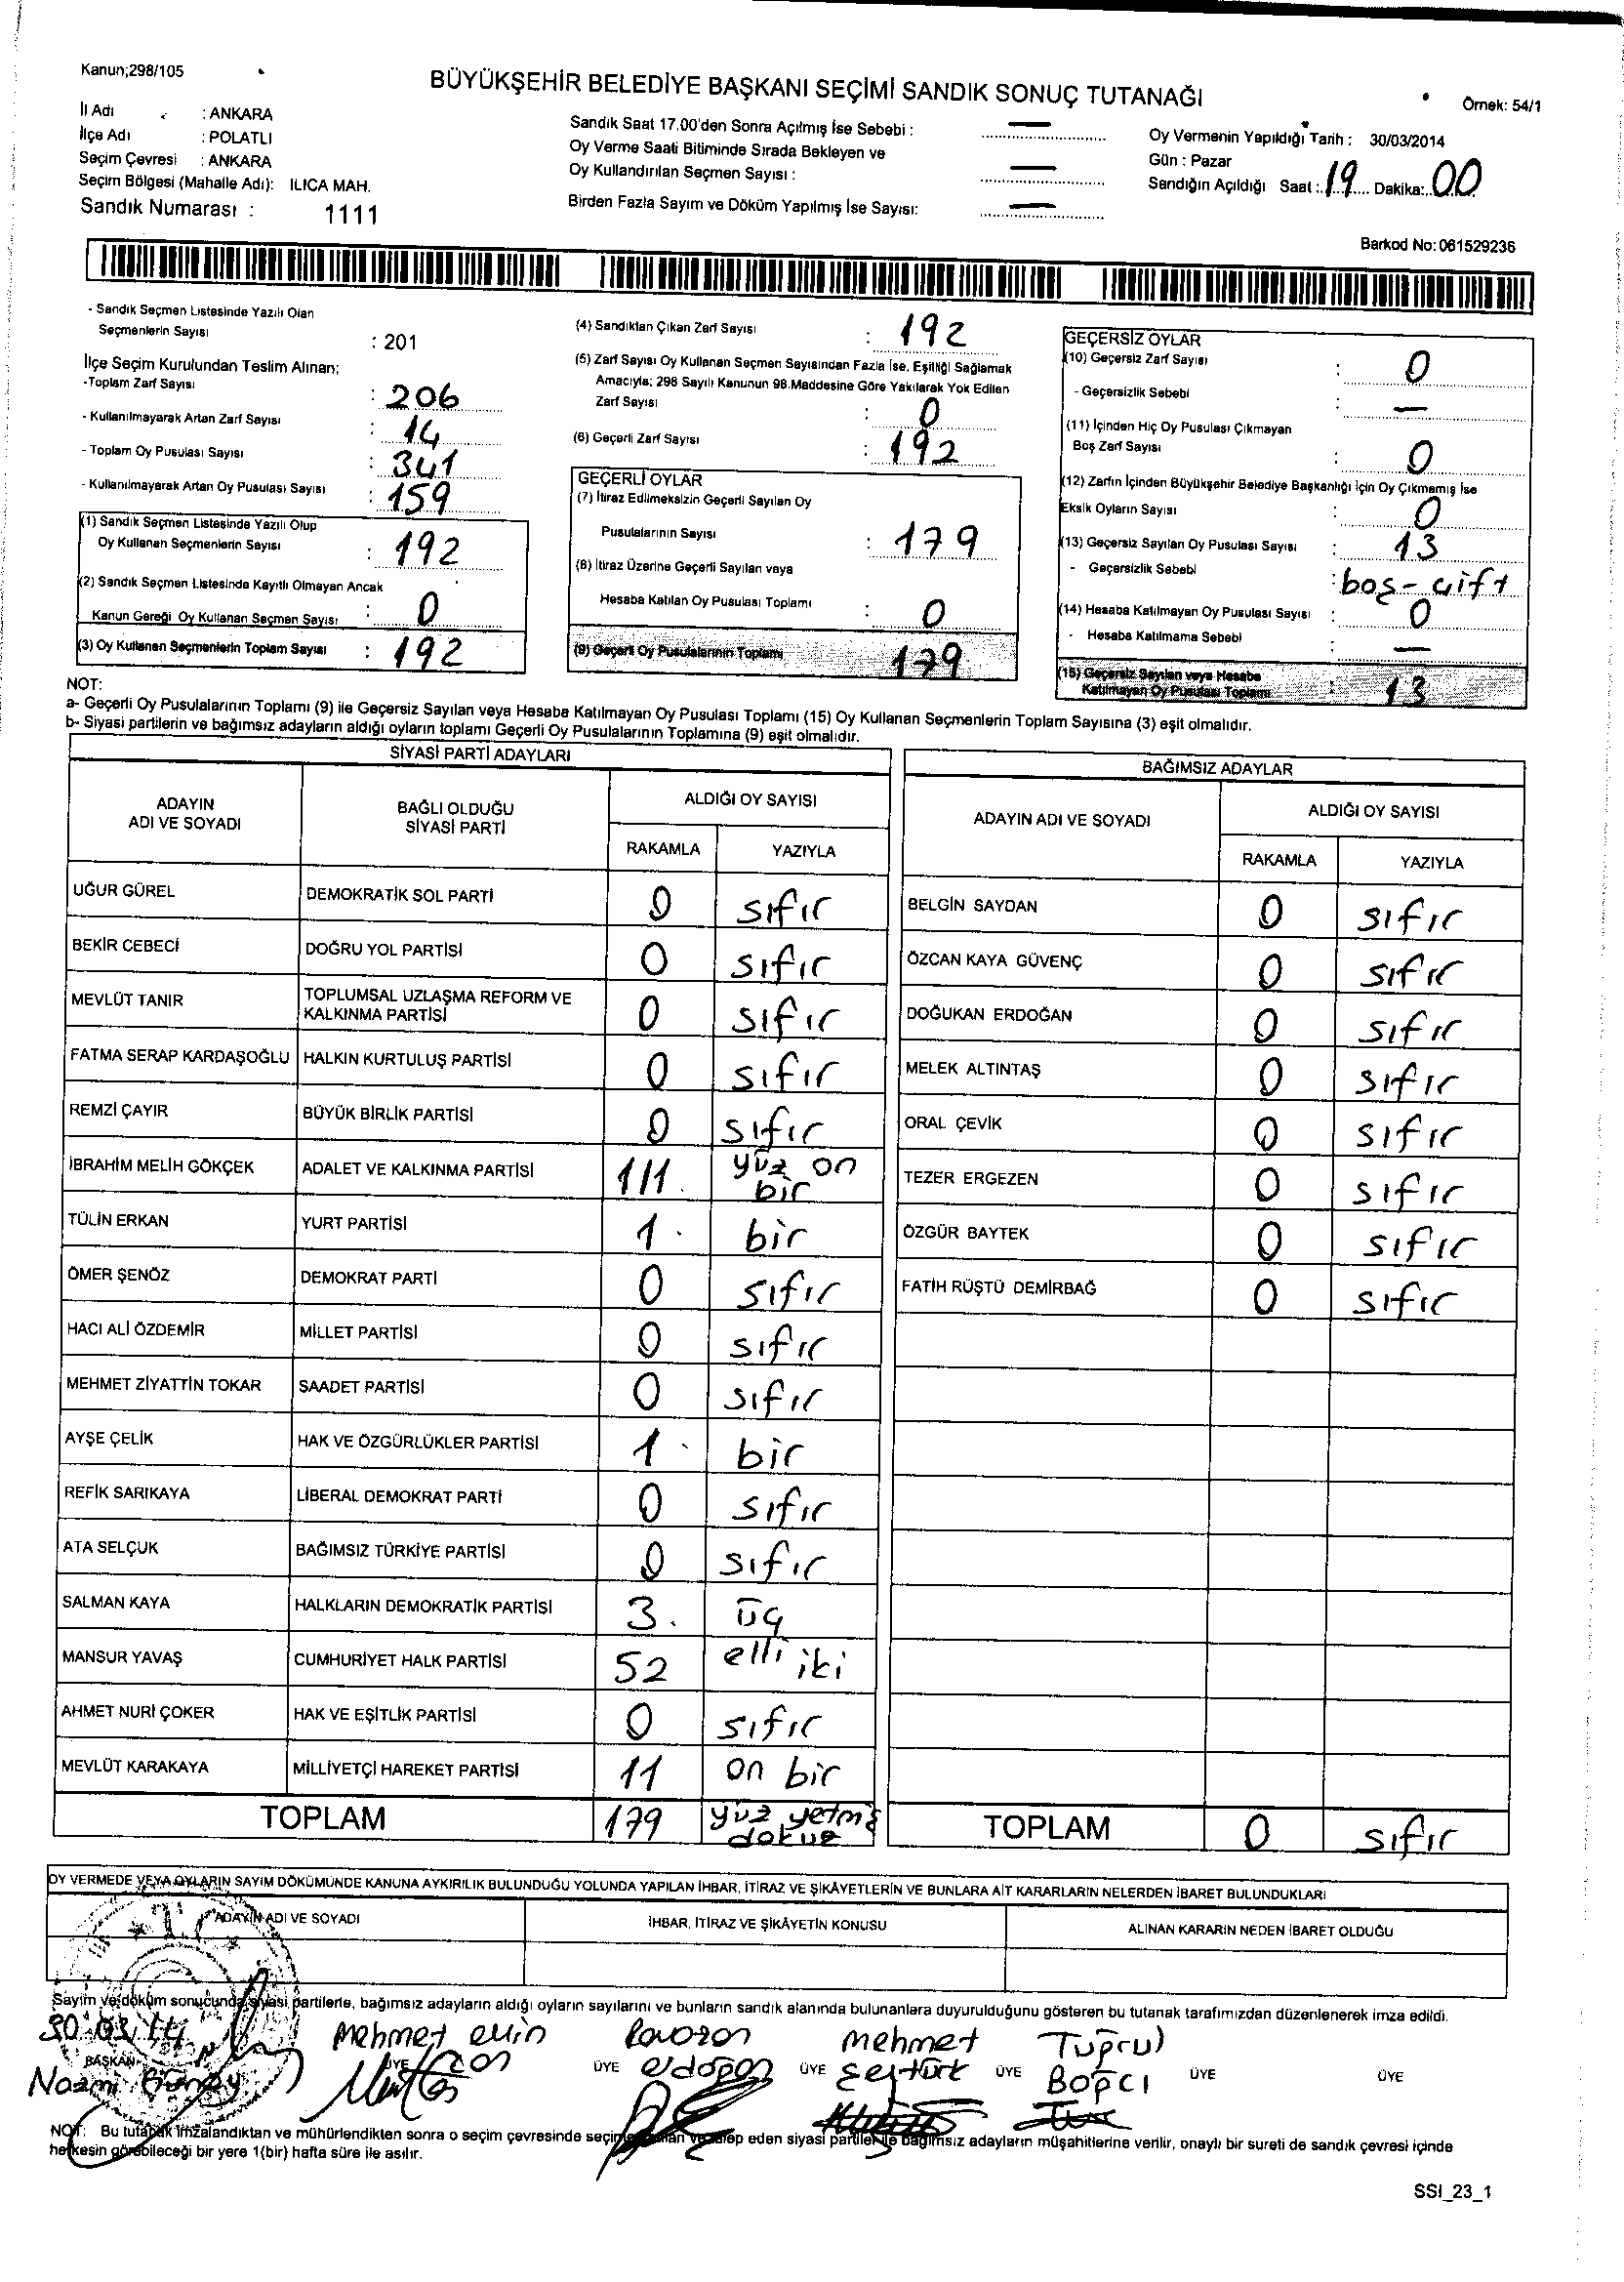 Kanun;298/105
BÜYÜKŞEHİR BELEDİYE BAŞKANI SEÇİMİ SANDIK SONUÇ TUTANAĞI
Örnek: 54/1
İl Adı : ANKARA
İlçe Adı : POLATLI
Seçim Çevresi : ANKARA
Seçim Bölgesi (Mahalle Adı): ILICA MAH.
Sandık Numarası : 1111
Sandık Saat 17.00'den Sonra Açılmış İse Sebebi : —
Oy Verme Saati Bitiminde Sırada Bekleyen ve
Oy Kullandırılan Seçmen Sayısı : —
Birden Fazla Sayım ve Döküm Yapılmış İse Sayısı: —
Oy Vermenin Yapıldığı Tarih : 30/03/2014
Gün : Pazar
Sandığın Açıldığı Saat : 19 Dakika: 00
Barkod No: 061529236
- Sandık Seçmen Listesinde Yazılı Olan
Seçmenlerin Sayısı : 201
İlçe Seçim Kurulundan Teslim Alınan;
-Toplam Zarf Sayısı : 206
- Kullanılmayarak Artan Zarf Sayısı : 14
- Toplam Oy Pusulası Sayısı : 341
- Kullanılmayarak Artan Oy Pusulası Sayısı : 159
(1) Sandık Seçmen Listesinde Yazılı Olup
Oy Kullanan Seçmenlerin Sayısı : 192
(2) Sandık Seçmen Listesinde Kayıtlı Olmayan Ancak
Kanun Gereği Oy Kullanan Seçmen Sayısı : 0
(3) Oy Kullanan Seçmenlerin Toplam Sayısı : 192
(4) Sandıktan Çıkan Zarf Sayısı : 192
(5) Zarf Sayısı Oy Kullanan Seçmen Sayısından Fazla İse, Eşitliği Sağlamak
Amacıyla; 298 Sayılı Kanunun 98.Maddesine Göre Yakılarak Yok Edilen
Zarf Sayısı : 0
(6) Geçerli Zarf Sayısı : 192
GEÇERLİ OYLAR
(7) İtiraz Edilmeksizin Geçerli Sayılan Oy
Pusulalarının Sayısı : 179
(8) İtiraz Üzerine Geçerli Sayılan veya
Hesaba Katılan Oy Pusulası Toplamı : 0
(9) Geçerli Oy Pusulalarının Toplamı 179
GEÇERSİZ OYLAR
(10) Geçersiz Zarf Sayısı : 0
- Geçersizlik Sebebi : —
(11) İçinden Hiç Oy Pusulası Çıkmayan
Boş Zarf Sayısı : 0
(12) Zarfın İçinden Büyükşehir Belediye Başkanlığı İçin Oy Çıkmamış İse
Eksik Oyların Sayısı : 0
(13) Geçersiz Sayılan Oy Pusulası Sayısı : 13
- Geçersizlik Sebebi : boş - çift
(14) Hesaba Katılmayan Oy Pusulası Sayısı : 0
- Hesaba Katılmama Sebebi : —
(15) Geçersiz Sayılan veya Hesaba
Katılmayan Oy Pusulası Toplamı : 13
NOT:
a- Geçerli Oy Pusulalarının Toplamı (9) ile Geçersiz Sayılan veya Hesaba Katılmayan Oy Pusulası Toplamı (15) Oy Kullanan Seçmenlerin Toplam Sayısına (3) eşit olmalıdır.
b- Siyasi partilerin ve bağımsız adayların aldığı oyların toplamı Geçerli Oy Pusulalarının Toplamına (9) eşit olmalıdır.
SİYASİ PARTİ ADAYLARI
ADAYIN ADI VE SOYADI BAĞLI OLDUĞU SİYASİ PARTİ ALDIĞI OY SAYISI
RAKAMLA YAZIYLA
UĞUR GÜREL DEMOKRATİK SOL PARTİ 0 sıfır
BEKİR CEBECİ DOĞRU YOL PARTİSİ 0 sıfır
MEVLÜT TANIR TOPLUMSAL UZLAŞMA REFORM VE KALKINMA PARTİSİ 0 sıfır
FATMA SERAP KARDAŞOĞLU HALKIN KURTULUŞ PARTİSİ 0 sıfır
REMZİ ÇAYIR BÜYÜK BİRLİK PARTİSİ 0 sıfır
İBRAHİM MELİH GÖKÇEK ADALET VE KALKINMA PARTİSİ 111 yüz on bir
TÜLİN ERKAN YURT PARTİSİ 1 bir
ÖMER ŞENÖZ DEMOKRAT PARTİ 0 sıfır
HACI ALİ ÖZDEMİR MİLLET PARTİSİ 0 sıfır
MEHMET ZİYATTİN TOKAR SAADET PARTİSİ 0 sıfır
AYŞE ÇELİK HAK VE ÖZGÜRLÜKLER PARTİSİ 1 bir
REFİK SARIKAYA LİBERAL DEMOKRAT PARTİ 0 sıfır
ATA SELÇUK BAĞIMSIZ TÜRKİYE PARTİSİ 0 sıfır
SALMAN KAYA HALKLARIN DEMOKRATİK PARTİSİ 3 üç
MANSUR YAVAŞ CUMHURİYET HALK PARTİSİ 52 elli iki
AHMET NURİ ÇOKER HAK VE EŞİTLİK PARTİSİ 0 sıfır
MEVLÜT KARAKAYA MİLLİYETÇİ HAREKET PARTİSİ 11 on bir
TOPLAM 179 yüz yetmiş dokuz
BAĞIMSIZ ADAYLAR
ADAYIN ADI VE SOYADI ALDIĞI OY SAYISI
RAKAMLA YAZIYLA
BELGİN SAYDAN 0 sıfır
ÖZCAN KAYA GÜVENÇ 0 sıfır
DOĞUKAN ERDOĞAN 0 sıfır
MELEK ALTINTAŞ 0 sıfır
ORAL ÇEVİK 0 sıfır
TEZER ERGEZEN 0 sıfır
ÖZGÜR BAYTEK 0 sıfır
FATİH RÜŞTÜ DEMİRBAĞ 0 sıfır
TOPLAM 0 sıfır
OY VERMEDE VEYA OYLARIN SAYIM DÖKÜMÜNDE KANUNA AYKIRILIK BULUNDUĞU YOLUNDA YAPILAN İHBAR, İTİRAZ VE ŞİKÂYETLERİN VE BUNLARA AİT KARARLARIN NELERDEN İBARET BULUNDUKLARI
ADAYIN ADI VE SOYADI İHBAR, İTİRAZ VE ŞİKÂYETİN KONUSU ALINAN KARARIN NEDEN İBARET OLDUĞU
Sayım ve döküm sonucunda siyasi partilerle, bağımsız adayların aldığı oyların sayılarını ve bunların sandık alanında bulunanlara duyurulduğunu gösteren bu tutanak tarafımızdan düzenlenerek imza edildi.
30.03.14 Mehmet Mehmet Tuğrul
BAŞKAN ÜYE ÜYE erdoğan ÜYE ÜYE Bağcı ÜYE ÜYE
Nazmi
NOT: Bu tutanak imzalandıktan ve mühürlendikten sonra o seçim çevresinde seçime katılan ve talep eden siyasi partiler ile bağımsız adayların müşahitlerine verilir, onaylı bir sureti de sandık çevresi içinde
herkesin görebileceği bir yere 1(bir) hafta süre ile asılır.
SSI_23_1